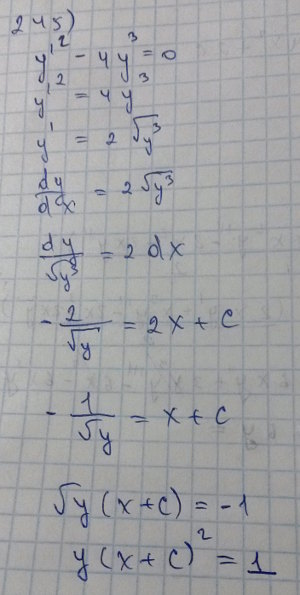 245)
y'² - 4y³ = 0
y'² = 4y³
y' = 2√y³
dy/dx = 2√y³
dy/√y³ = 2dx
- 2/√y = 2x + C
- 1/√y = x + C
√y (x+c) = -1
y (x+c)² = 1